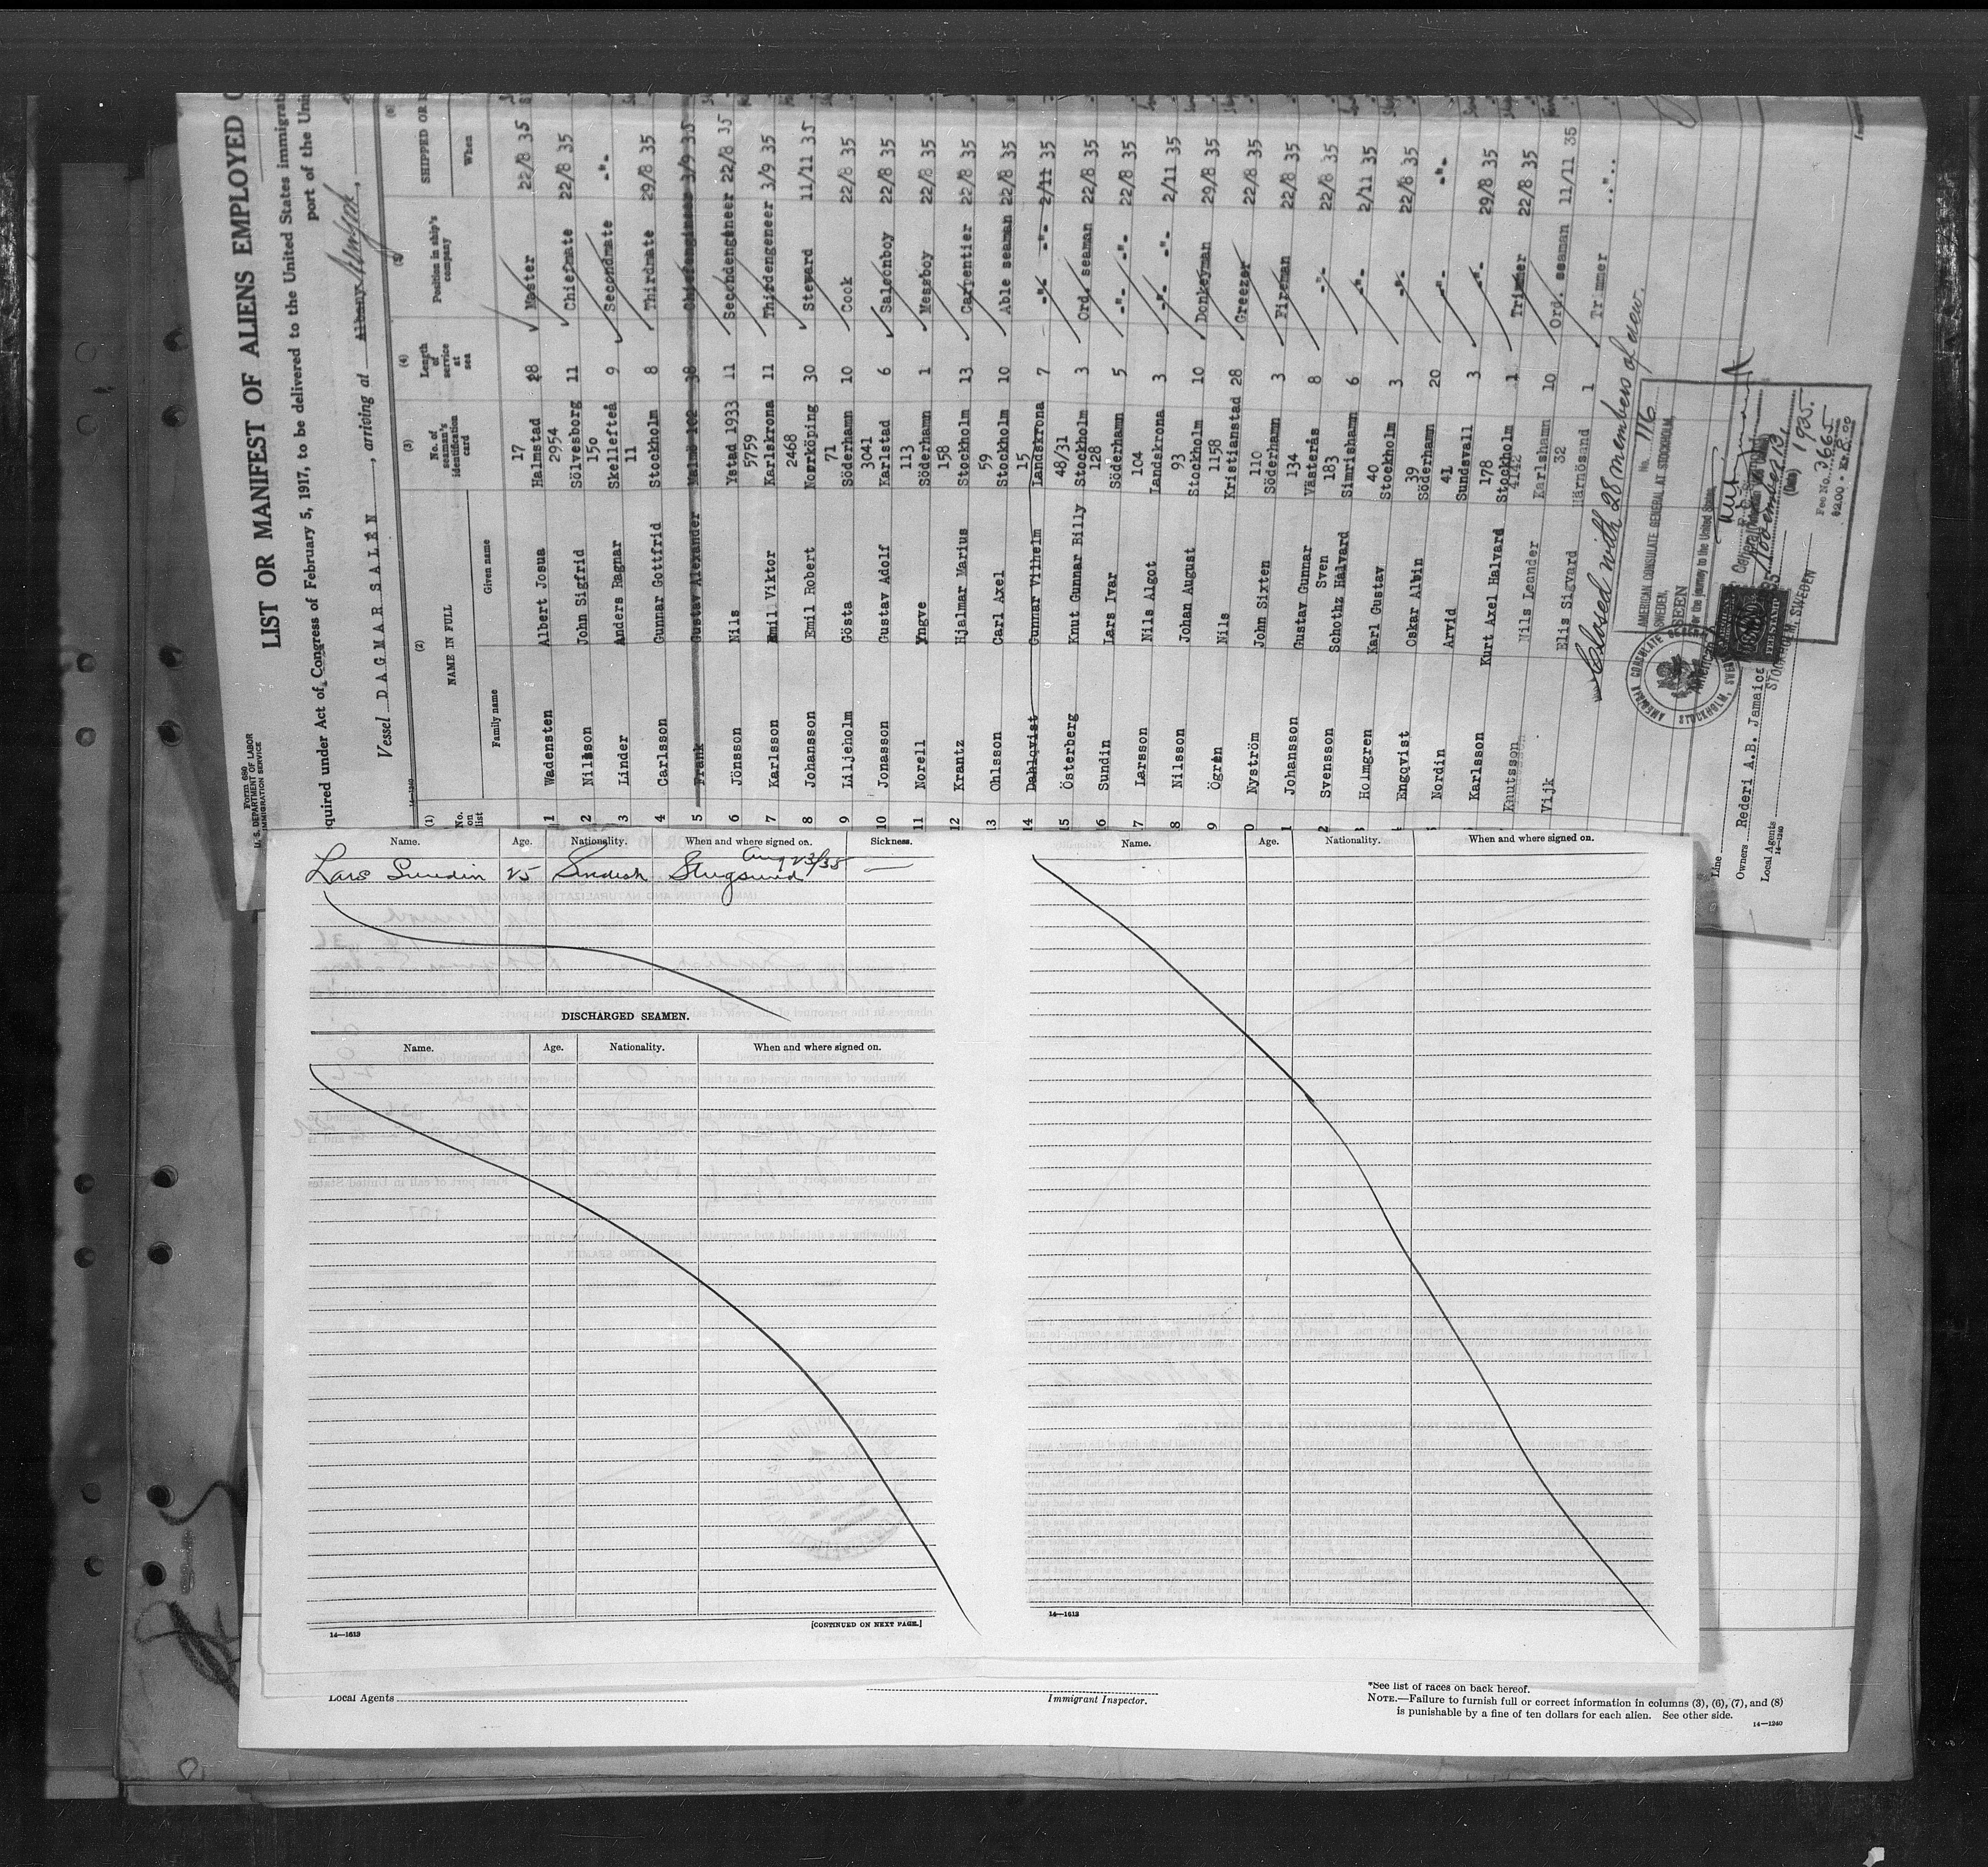 Form 680
U. S. DEPARTMENT OF LABOR
IMMIGRATION SERVICE
LIST OR MANIFEST OF ALIENS EMPLOYED
equired under Act of Congress of February 5, 1917, to be delivered to the United States immigrati
port of the Unit
Vessel DAGMAR SALEN, arriving at Albany Newyork,
14—1240
(1) (2) (3) (4) (5) (6)
No. on list
NAME IN FULL
Family name Given name
No. of seaman's identification card
Length of service at sea
Position in ship's company
SHIPPED OR
When
1 Wadensten Albert Josua 17 Halmstad 28 Master 22/8 35
2 Nilsson John Sigfrid 2954 Sölvesborg 11 Chiefmate 22/8 35
3 Linder Anders Ragnar 150 Skellefteå 9 Secondmate -"-
4 Carlsson Gunnar Gottfrid 11 Stockholm 8 Thirdmate 29/8 35
5 Frank Gustav Alexander Malmö 102 38 Chiefengineer 3/9 35
6 Jönsson Nils Ystad 1933 11 Secondengeneer 22/8 35
7 Karlsson Emil Viktor 5759 Karlskrona 11 Thirdengeneer 3/9 35
8 Johansson Emil Robert 2468 Norrköping 30 Steward 11/11 35
9 Liljeholm Gösta 71 Söderhamn 10 Cook 22/8 35
10 Jonasson Gustav Adolf 3041 Karlstad 6 Saloonboy 22/8 35
11 Norell Yngve 113 Söderhamn 1 Messboy 22/8 35
12 Krantz Hjalmar Marius 158 Stockholm 13 Carpentier 22/8 35
13 Ohlsson Carl Axel 59 Stockholm 10 Able seaman 22/8 35
14 Dahlqvist Gunnar Vilhelm 15 Landskrona 7 -"- -"- 2/11 35
15 Österberg Knut Gunnar Billy 48/31 Stockholm 3 Ord. seaman 22/8 35
16 Sundin Lars Ivar 128 Söderhamn 5 -"- -"- 22/8 35
17 Larsson Nils Algot 104 Landskrona 3 -"- -"- 2/11 35
8 Nilsson Johan August 93 Stockholm 10 Donkeyman 29/8 35
9 Ögren Nils 1158 Kristianstad 28 Greezer 22/8 35
0 Nyström John Sixten 110 Söderhamn 3 Fireman 22/8 35
1 Johansson Gustav Gunnar 134 Västerås 8 -"- 22/8 35
2 Svensson Sven Schothz Halvard 183 Simrishamn 6 -"- 2/11 35
Holmgren Karl Gustav 40 Stockholm 3 -"- 22/8 35
Engqvist Oskar Albin 39 Söderhamn 20 -"- -"-
Nordin Arvid 41 Sundsvall 3 -"- 29/8 35
Karlsson Kurt Axel Halvard 178 Stockholm 1 Trimmer 22/8 35
Knutsson Nils Leander 4142 Karlshamn 10 Ord. seaman 11/11 35
Vijk Elis Sigvard 32 Härnösand 1 Trimmer ..".
Closed with 28 members of crew.
No. 1116
AMERICAN CONSULATE GENERAL AT STOCKHOLM,
SWEDEN,
SEEN
for the journey to the United States
November 13, 1935.
(Date)
Fee No. 3665
$2.00 =
AMERICAN CONSULATE GENERAL
STOCKHOLM, SWEDEN
FEE STAMP
STOCKHOLM, SWEDEN
Line
Owners Rederi A.B. Jamaica
Local Agents
14—1240
Name. Age. Nationality. When and where signed on. Sickness.
Lars Sundin 25 Swedish Aug 23/35 —
DISCHARGED SEAMEN.
Name. Age. Nationality. When and where signed on.
14—1613
[CONTINUED ON NEXT PAGE.]
Name. Age. Nationality. When and where signed on.
14—1613
Local Agents
Immigrant Inspector.
*See list of races on back hereof.
NOTE.—Failure to furnish full or correct information in columns (3), (6), (7), and (8)
is punishable by a fine of ten dollars for each alien. See other side.
14—1240